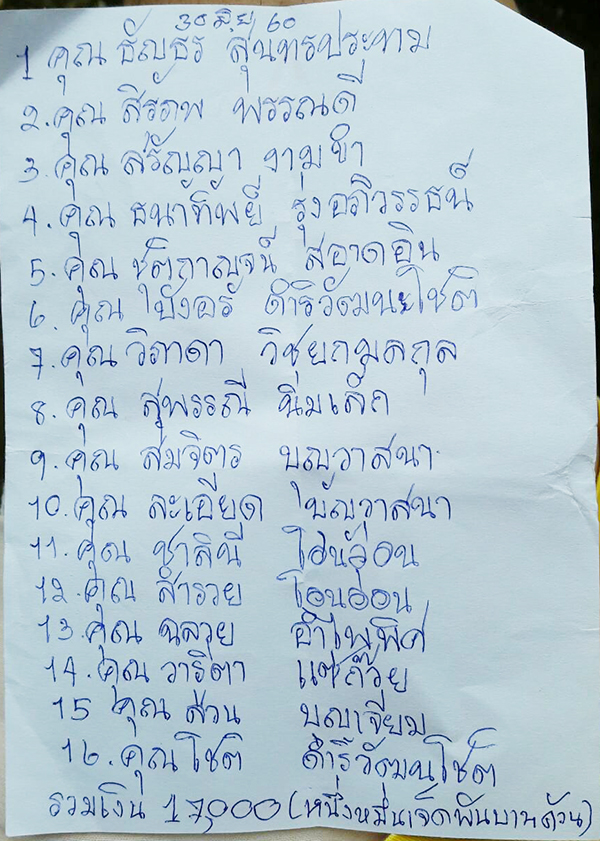 30 มิ.ย 60
1 คุณ ธัญธร สุนทรประทาม
2. คุณ สิรภพ พรรณดี
3. คุณ สรัญญา งามขำ
4. คุณ ธนาทิพย์ รุ่งอภิวรรธน์
5. คุณ ชุติกาญจน์ สอาดอิน
6. คุณ บังอร ดำริวัฒนะโชติ
7. คุณ วิภาดา วิชุยกมลกุล
8. คุณ สุพรรณี นิ่มเล็ก
9. คุณ สมจิตร บุญวาสนา
10. คุณ ละเอียด บุญวาสนา
11. คุณ ชาลินี โอนอ่อน
12. คุณ สำรวย โอนอ่อน
13. คุณ ฉลวย อำไพพิศ
14. คุณ วาริตา แซ่ก๊วย
15 คุณ ส่วน บุญเจียม
16. คุณ โชติ ดำริวัฒนโชติ
รวมเงิน 17,000 (หนึ่งหมื่นเจ็ดพันบาทถ้วน)